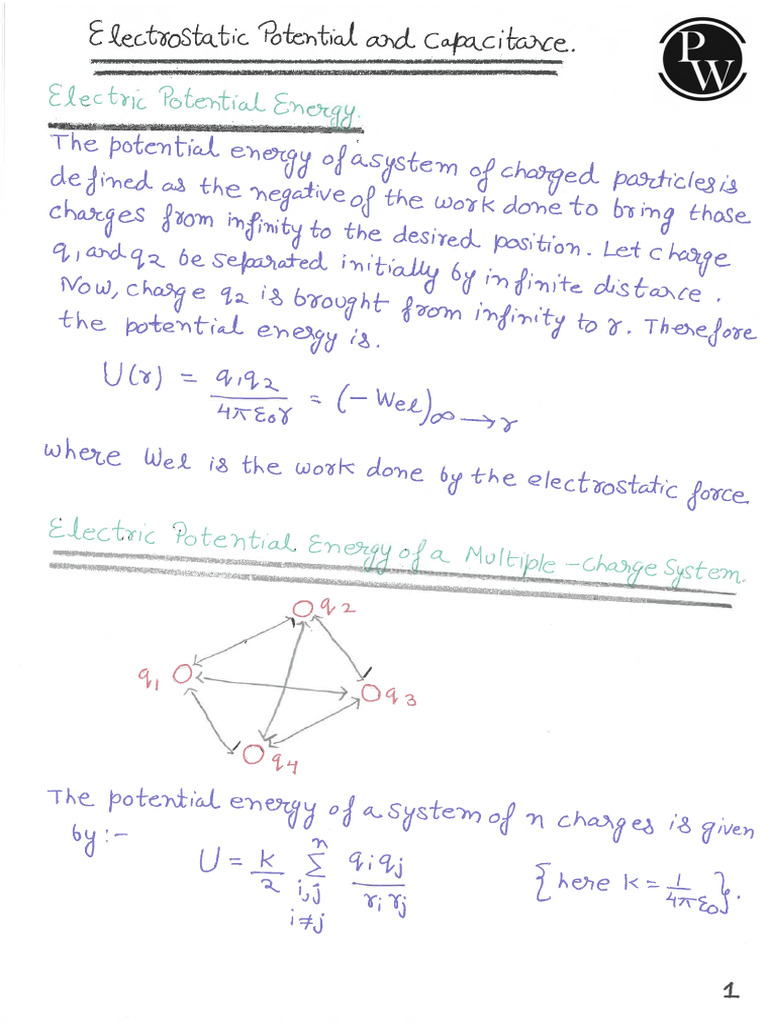 Electrostatic Potential and Capacitance.
P
W
Electric Potential Energy.
The potential energy of a system of charged particles is
defined as the negative of the work done to bring those
charges from infinity to the desired position. Let charge
q1 and q2 be separated initially by infinite distance.
Now, charge q2 is brought from infinity to r. Therefore
the potential energy is.
U(r) = q1q2 / 4πε0r = (-Wel)∞→r
where Wel is the work done by the electrostatic force
Electric Potential Energy of a Multiple-Charge System.
q2
q1
q3
q4
The potential energy of a system of n charges is given
by:-
U = k/2 n∑i,j i≠j qiqj / rirj {here k = 1/4πε0}.
1